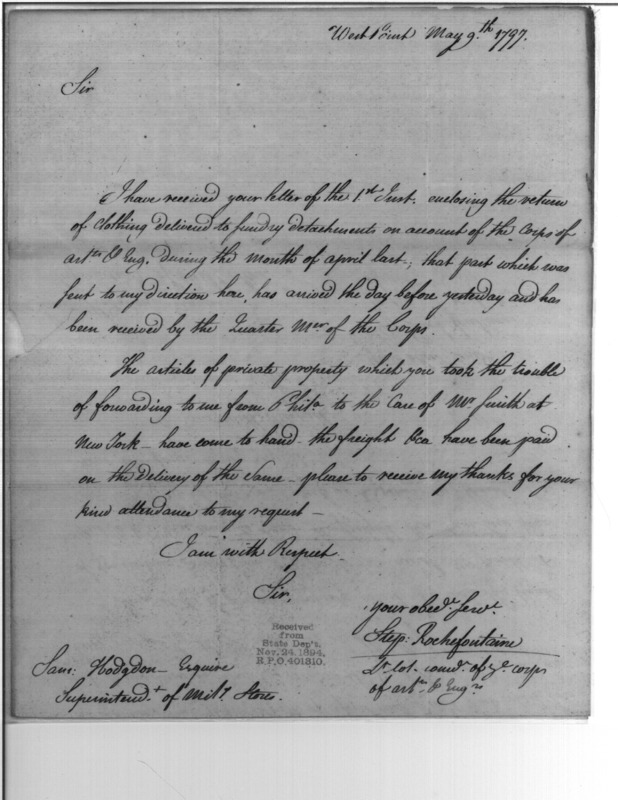 West Point May 9.th 1797.
Sir
I have received your letter of the 1.st Inst. enclosing the return
of Clothing delivered to sundry detachments on account of the Corps of
art.rs & Eng. During the month of april last; that part which was
sent to my direction here, has arrived the day before yesterday and has
been received by the Quarter M.er of the Corps.
The articles of private property which you took the trouble
of forwarding to me from Phil.a to the Care of M.r Smith at
New York - have come to hand - the freight &ca have been paid
on the Delivery of the Same - please to receive my thanks for your
kind attendance to my request -
I am with Respect
Sir,
your obed.t Serv.t
Step: Rochefontaine
Lt Col. comd.t of y.e corps
of art.rs & Eng.rs
Received
from
State Dep't.
Nov. 24, 1894.
R.P.O. 401310.
Sam: Hodgdon - Esquire
Superintend.t of Mil.y Stores.